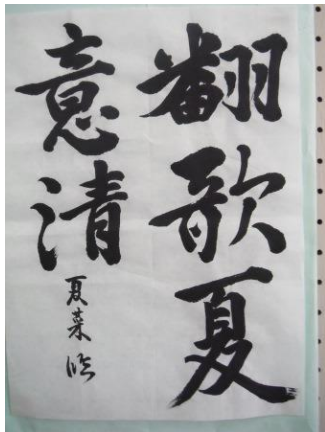 翻歌夏
意清
夏菜臨